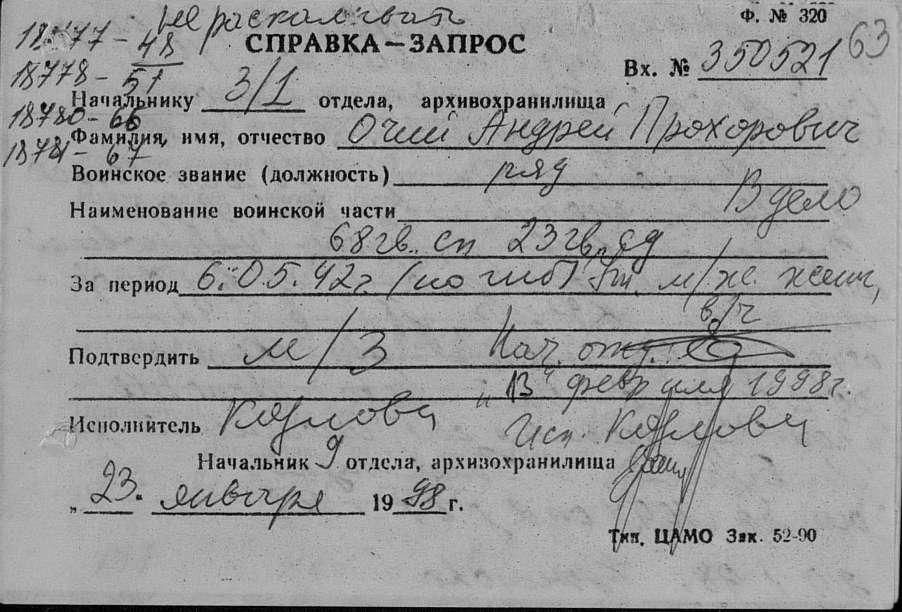 не раскаливать
Ф. № 320
18777 - 48
СПРАВКА — ЗАПРОС
63
18778 - 51
Вх. № 350521
Начальнику 3/1 отдела, архивохранилища
18780 - 66
Фамилия, имя, отчество Очий Андрей Прохорович
18781 - 67
Воинское звание (должность) ряд
В дело
Наименование воинской части
68 гв. сп 23 гв. сд
За период 6.05.42 г. (погиб)
в/ч
Подтвердить м/з Нач. отд.
"13" февраля 1998 г.
Исполнитель Козлова Исп. Козлова
Начальник 9 отдела, архивохранилища
„23" января 1998 г.
Тип. ЦАМО Зак. 52-90